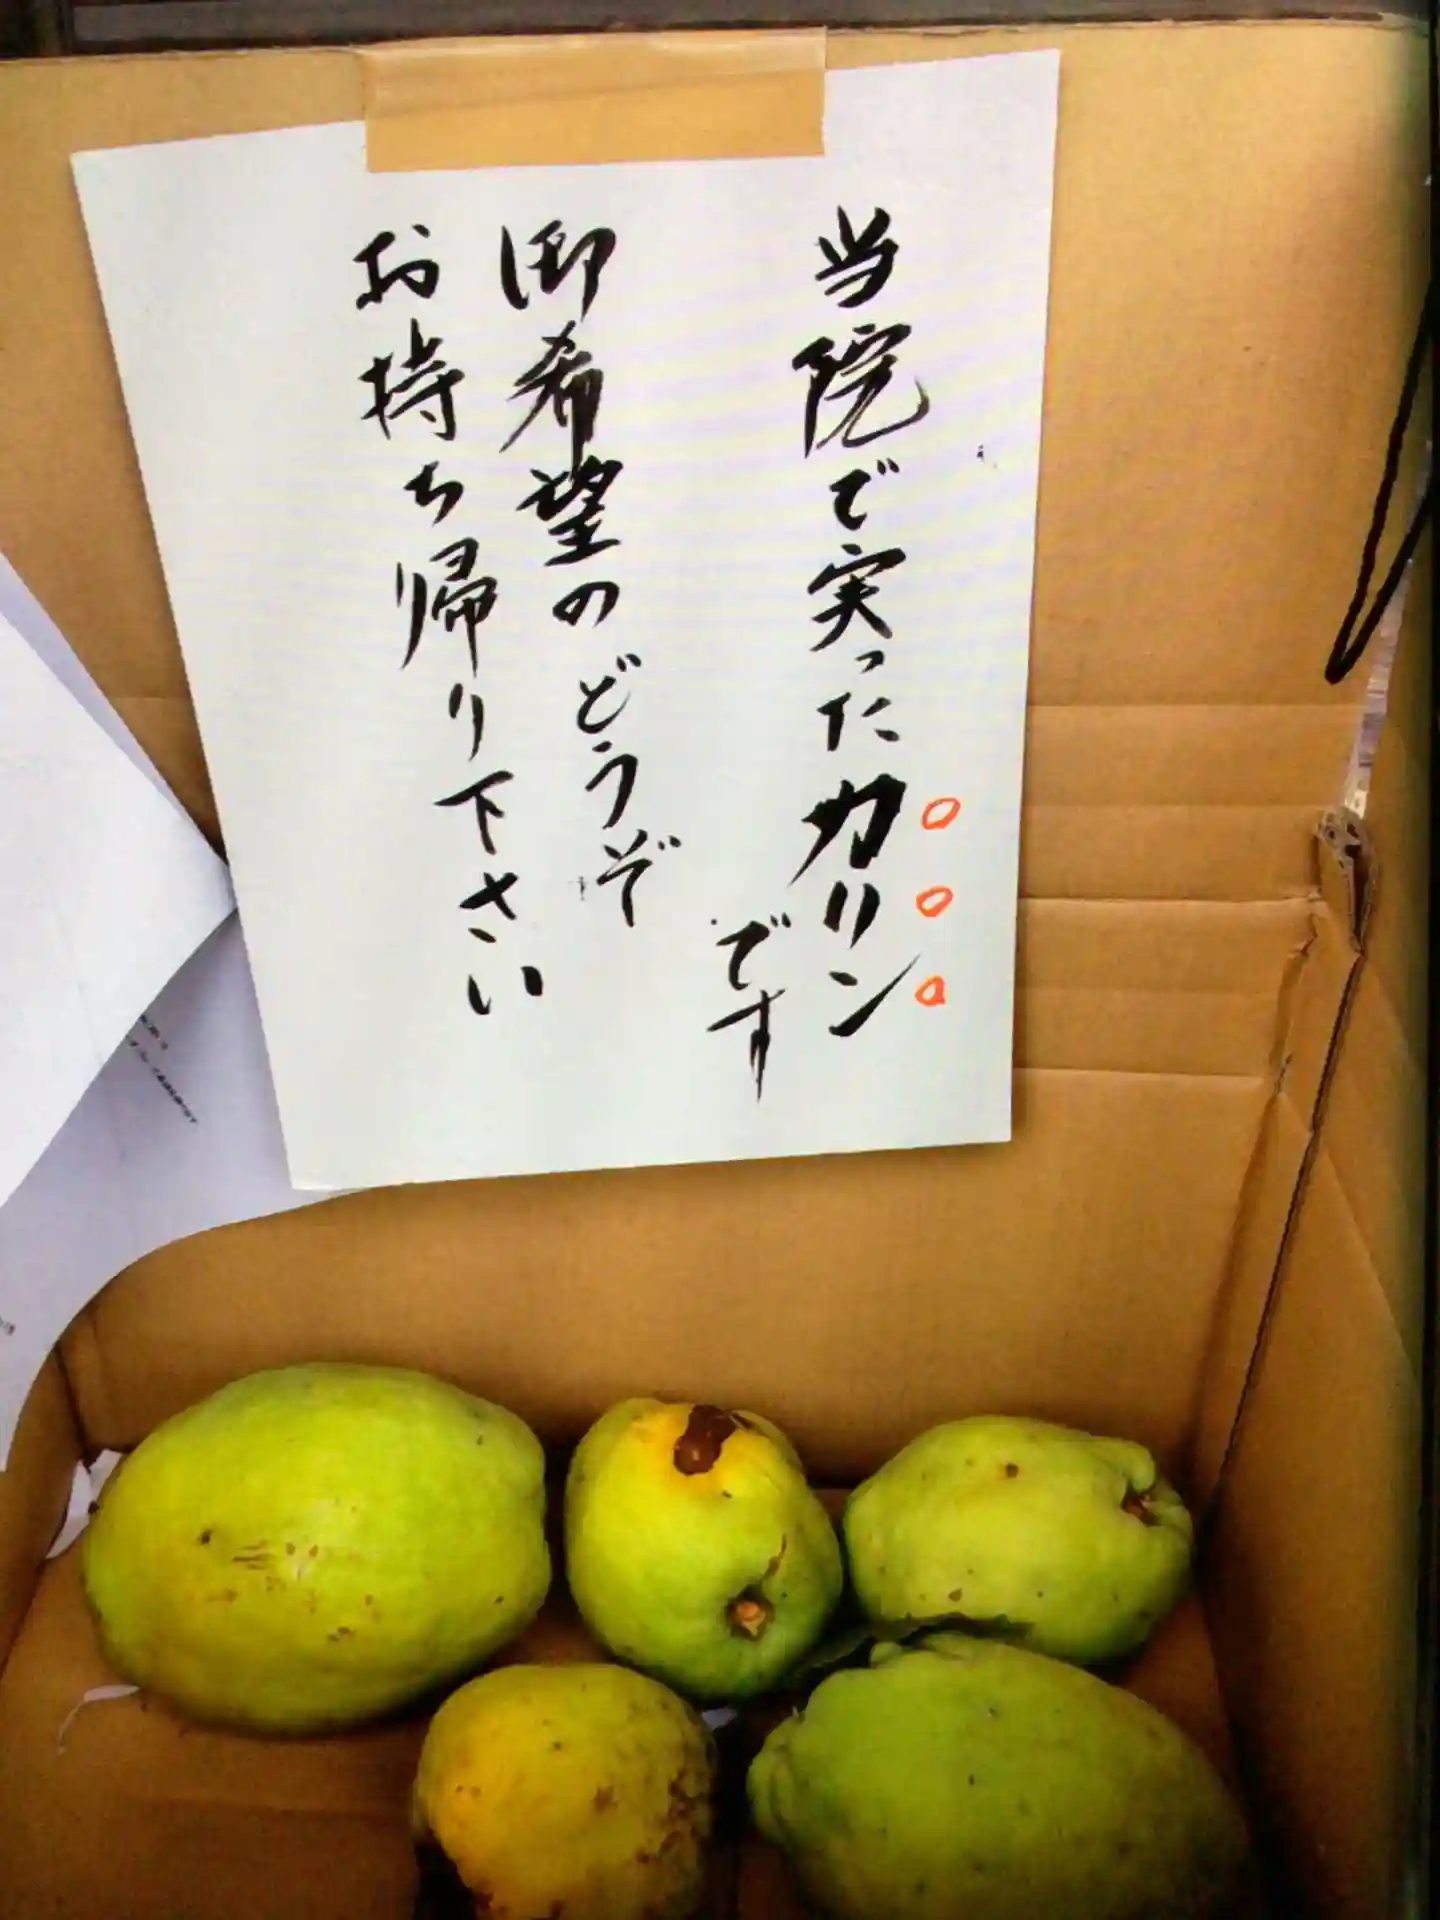 当院で実ったカリン
です
御希望のどうぞ
お持ち帰り下さい